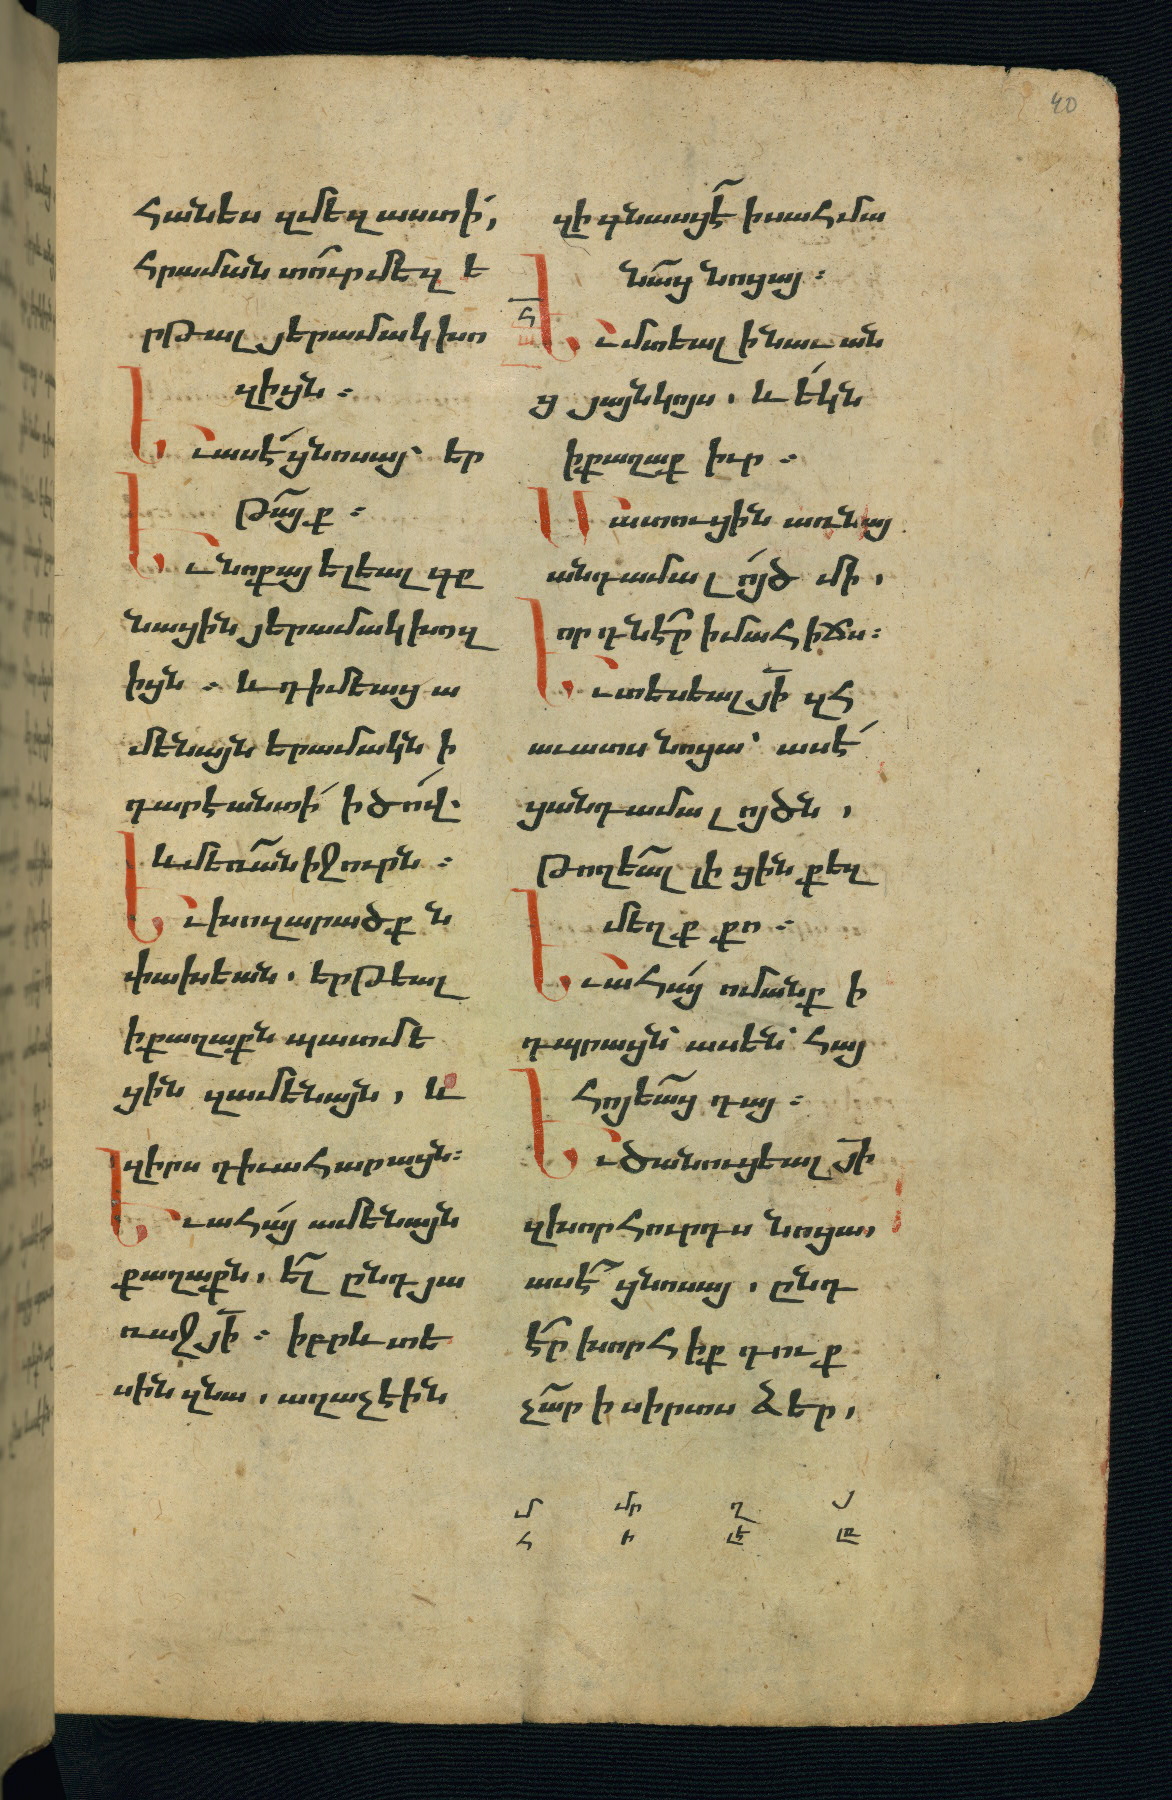 40
հանես զմեզ աստի,
հրաման տուր մեզ ե
րթալ յերամակ խո
զիցն ։
Եւ ասէ ցնոսայ՝ եր
թայք ։
Եւ նոքայ ելեալ գը
նացին յերամակ խոզ
իցն ։ և դիմեաց ա
մենայն երամակն ի
դարէ անտի ի ծով.
և մեռան ի ջուրն ։
Եւ խոզարածքն
փախեան . երթեալ
ի քաղաքն պատմե
ցին զամենայն, և
զիրս դիւահարացն։
Եւ ահայ ամենայն
քաղաքն, ել ընդ յա
ռաջ յի ։ իբրև տե
սին զնա, աղաչէին
զի գնասցէ ի սահմա
նաց նոցայ ։
հ
Եւ մտեալ ի նաւ ան
ց յայնկոյս . և եկն
ի քաղաք իւր ։
Մատուցին առ նայ
անդամալոյծ մի ,
որ դնէր ի մահիճս։
Եւ տեսեալ յի զհ
աւատս նոցա՝ ասէ
ցանդամալոյծն ,
թողեալ լիցին քեզ
մեղք քո ։
Եւ ահայ ոմանք ի
դպրացն՝ ասեն՝ հայ
հոյեաց դայ ։
Եւ ծանուցեալ յի
զխորհուրդս նոցա,
ասէ ցնոսայ , ընդ
էր խորհիք դուք
չար ի սիրտս ձեր,
մ մր ղ յ
հ ի լէ լը